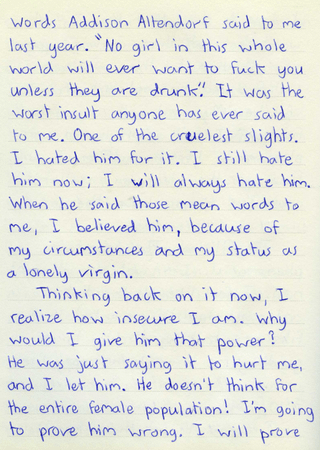 words Addison Altendorf said to me
last year. "No girl in this whole
world will ever want to fuck you
unless they are drunk." It was the
worst insult anyone has ever said
to me. One of the cruelest slights.
I hated him for it. I still hate
him now; I will always hate him.
When he said those mean words to
me, I believed him, because of
my circumstances and my status as
a lonely virgin.
Thinking back on it now, I
realize how insecure I am. Why
would I give him that power?
He was just saying it to hurt me,
and I let him. He doesn't think for
the entire female population! I'm going
to prove him wrong. I will prove